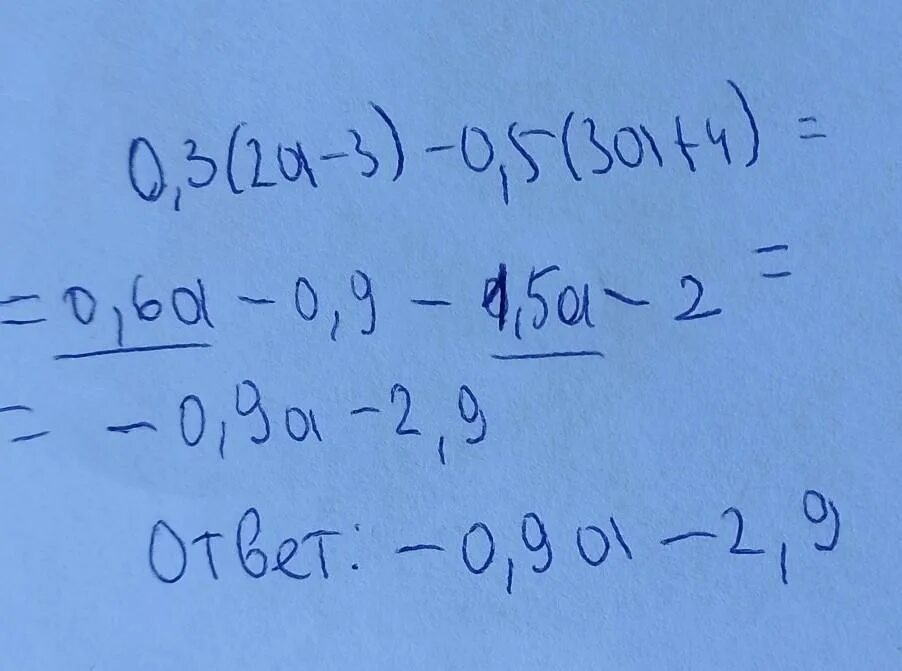 0,3(2a-3)-0,5(3a+4)=
=0,6a-0,9-1,5a-2=
=-0,9a-2,9
Ответ: -0,9a-2,9